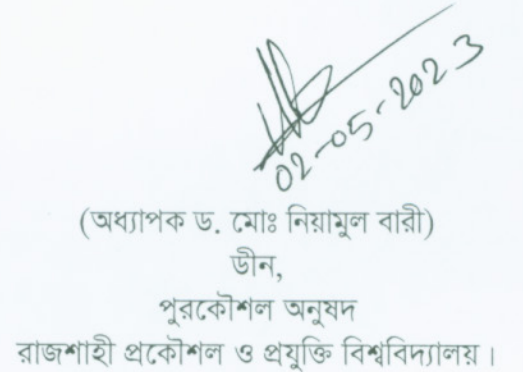 02-05-2023
(অধ্যাপক ড. মোঃ নিয়ামুল বারী)
ডীন,
পুরকৌশল অনুষদ
রাজশাহী প্রকৌশল ও প্রযুক্তি বিশ্ববিদ্যালয়।